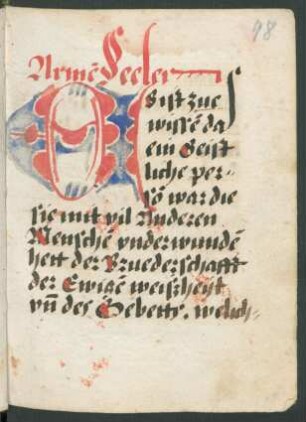 98
Armē Seelen
ES ist zue
wissē da
ein Geist
liche per-
sō war die
sie mit vil Anderen
Menschē vnderwundē
hett der Bruederschafft
der Ewigē weisheyt
vn̄ des Gebetts. welich-